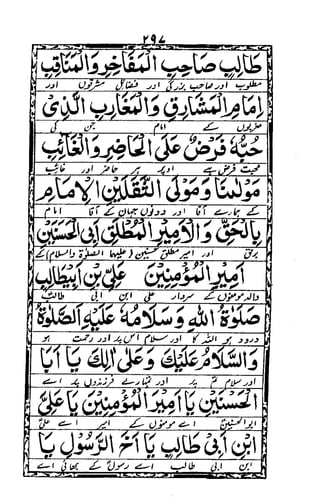 ۲۹۷
طَالِبٍ صَاحِبِ الْمَفَاخِرِ وَالْمَنَاقِبِ
مطلوب اور صاحب بزرگی اور فضائل مشرقوں اور
اِمَامِ الْمَشَارِقِ وَالْمَغَارِبِ الَّذِیْ
مغربوں کے امام جن کی
حُبُّهٗ فَرْضٌ عَلَی الْحَاضِرِ وَالْغَائِبِ
محبت فرض ہے اوپر ہر حاضر اور غائب
مَوْلٰىنَا وَمَوْلَی الثَّقَلَیْنِ الْاِمَامِ
کے ہمارے آقا اور دونوں جہان کے آقا امام
بِالْحَقِّ وَالْاَمِیْرِ الْمُطْلَقِ اَبِی الْحَسَنَیْنِ
برحق اور امیر مطلق حسنین (علیہما الصلوٰة والسلام) کے
اَمِیْرِ الْمُؤْمِنِیْنَ عَلِیِّ بْنِ اَبِیْطَالِبٍ
والد مومنوں کے سردار علی ابن ابی طالب
صَلٰوةُ اللّٰهِ وَسَلَامُهٗ عَلَیْهِ الصَّلٰوةُ
درود ہو اللہ کا اور سلام اس پر اور رحمت ہو
وَالسَّلَامُ عَلَیْكَ وَعَلٰی اٰلِكَ یَا اَبَا
اور سلام تم پر اور تمہارے فرزندوں پر اے
الْحَسَنَیْنِ یَا اَمِیْرَ الْمُؤْمِنِیْنَ یَا عَلِیَّ
ابوالحسنین اے مومنوں کے امیر اے علی
ابْنَ اَبِیْ طَالِبٍ یَا اَخَ الرَّسُوْلِ یَا
ابن ابی طالب اے رسول کے بھائی اے